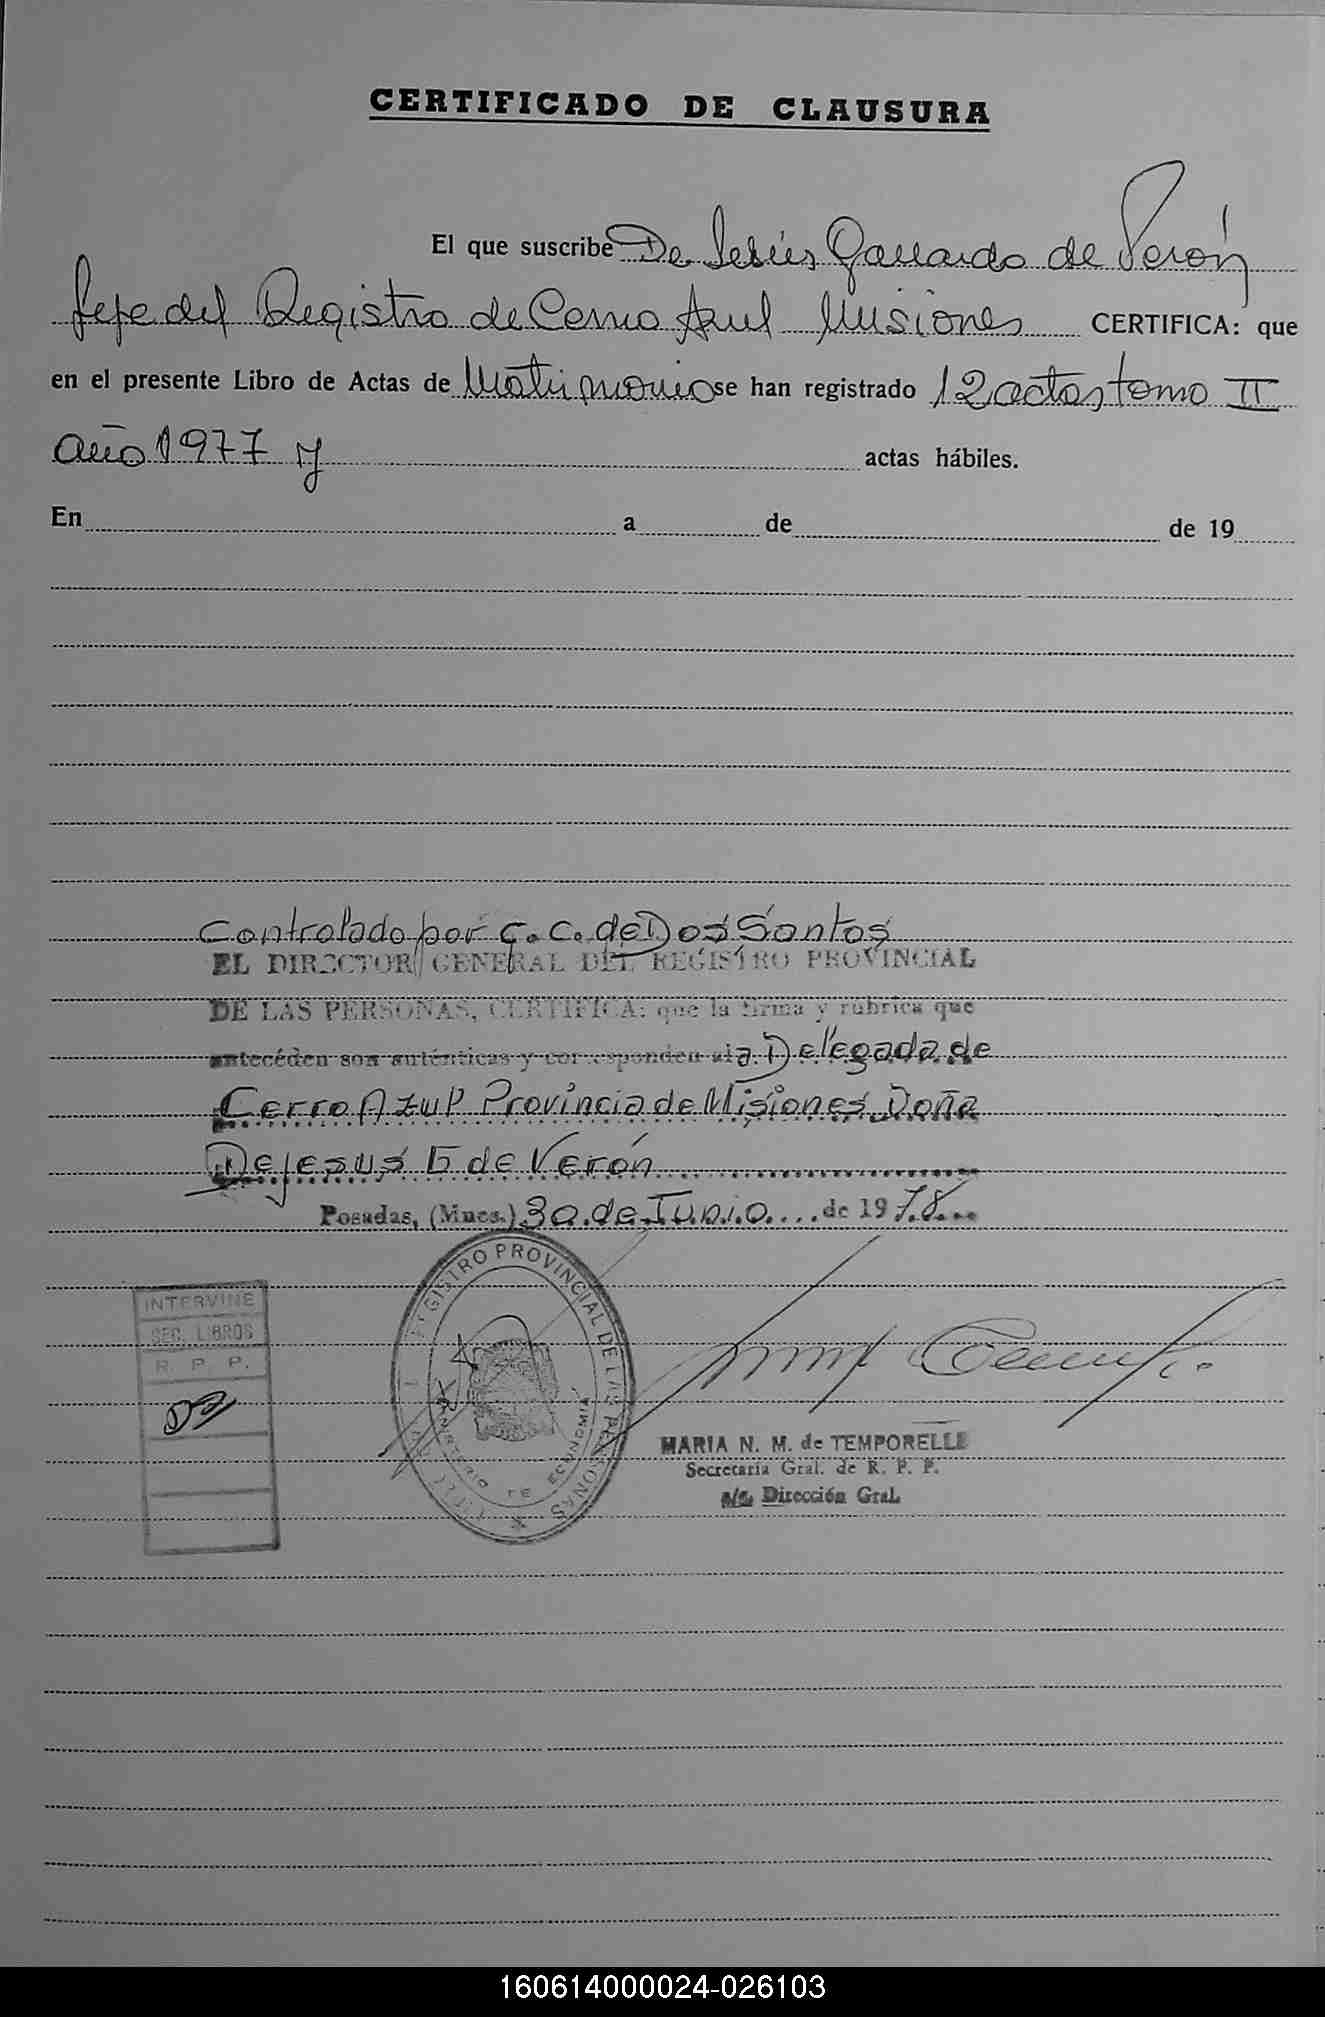 CERTIFICADO DE CLAUSURA
El que suscribe De Jesús Gallardo de Verón
Jefe del Registro de Cerro Azul Misiones CERTIFICA: que
en el presente Libro de Actas de Matrimonio se han registrado 12 actas tomo II
año 1977 y actas hábiles.
En a de de 19
Controlado por G. C. de Dos Santos
EL DIRECTOR GENERAL DEL REGISTRO PROVINCIAL
DE LAS PERSONAS, CERTIFICA: que la firma y rúbrica que
antecéden son auténticas y corresponden a la Delegada de
Cerro Azul Provincia de Misiones Doña
De Jesus G de Verón
Posadas, (Mnes.) 30 de Junio de 1978
INTERVINE
SEC. LIBROS
R. P. P.
REGISTRO PROVINCIAL DE LAS PERSONAS
MINISTERIO DE ECONOMIA
MARIA N. M. de TEMPORELLI
Secretaria Gral. de R. P. P.
a/c. Dirección Gral.
160614000024-026103